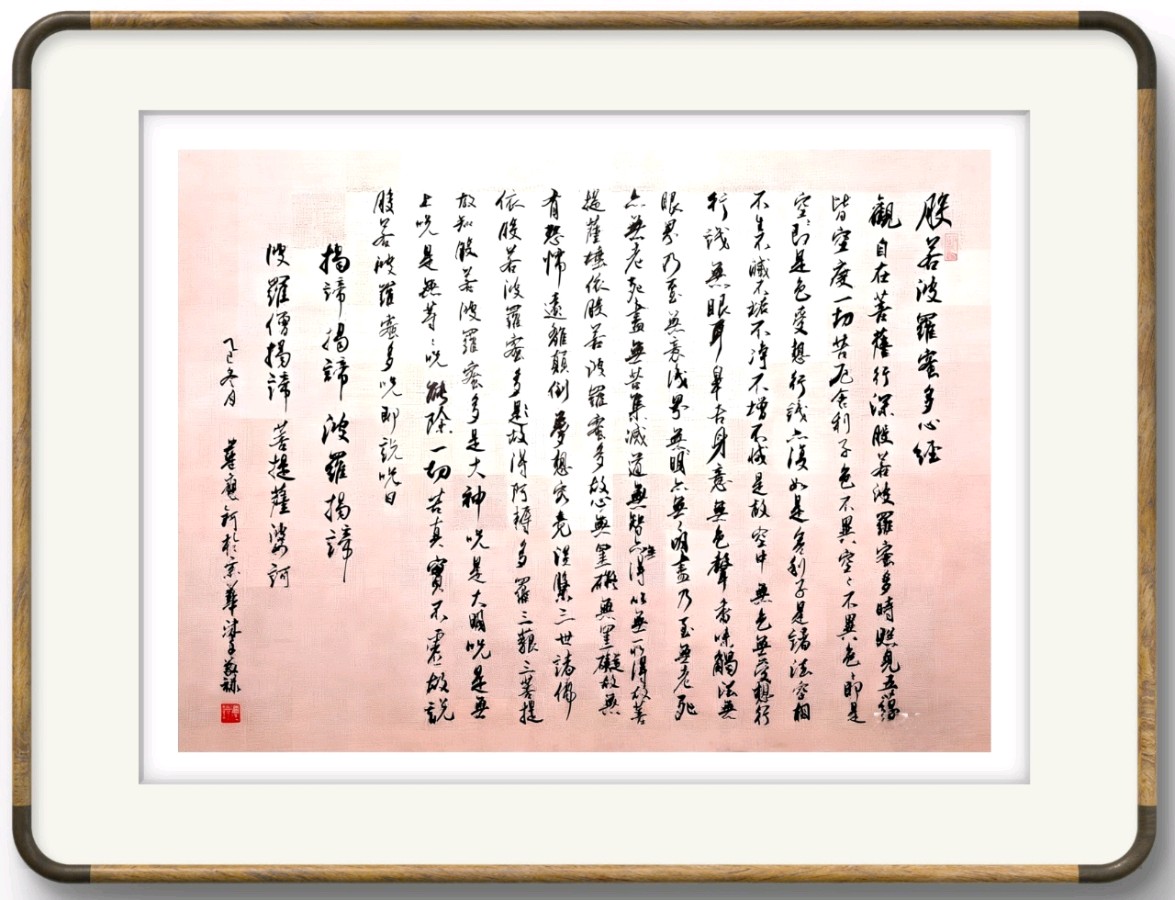 般若波羅蜜多心経
觀自在菩薩行深般若波羅蜜多時照見五蘊
皆空度一切苦厄舍利子色不異空〻不異色〻即是
空〻即是色受想行識亦復如是舍利子是諸法空相
不生不滅不垢不净不增不減是故空中無色無受想行
行識無眼耳鼻舌身意無色聲香味觸法無
眼界乃至無意識界無明亦無〻明盡乃至無老死
亦無老死盡無苦集滅道無智亦無得以無所得故菩
提薩埵依般若波羅蜜多故心無罣礙無罣礙故無
有恐怖遠離顛倒夢想究竟涅槃三世諸佛
依般若波羅蜜多是故得阿耨多羅三藐三菩提
故知般若波羅蜜多是大神咒是大明咒是無
上咒是無等〻咒能除一切苦真實不虛故說
般若波羅蜜多咒即說咒曰
揭諦揭諦波羅揭諦
波羅僧揭諦菩提薩婆訶
乙巳冬月 於京華 敬錄